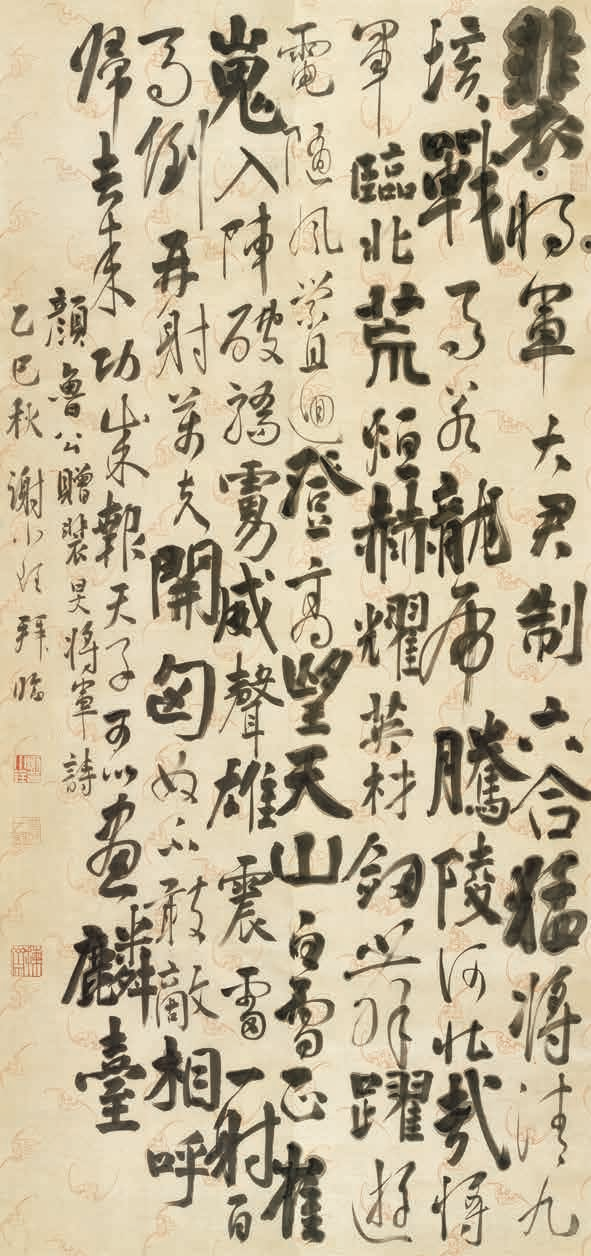 裴將軍大君制六合猛將清九
垓戰馬若龍虎騰陵何壯哉將
軍臨北荒烜赫耀英材劍舞躍遊
電隨風縈且迴登高望天山白雪正崔
嵬入陣破驕虜威聲雄震雷一射百
馬倒再射萬夫開匈奴不敢敵相呼
歸去來功成報天子可以畫麟臺
顏魯公贈裴旻將軍詩
乙巳秋 謝小 拜臨